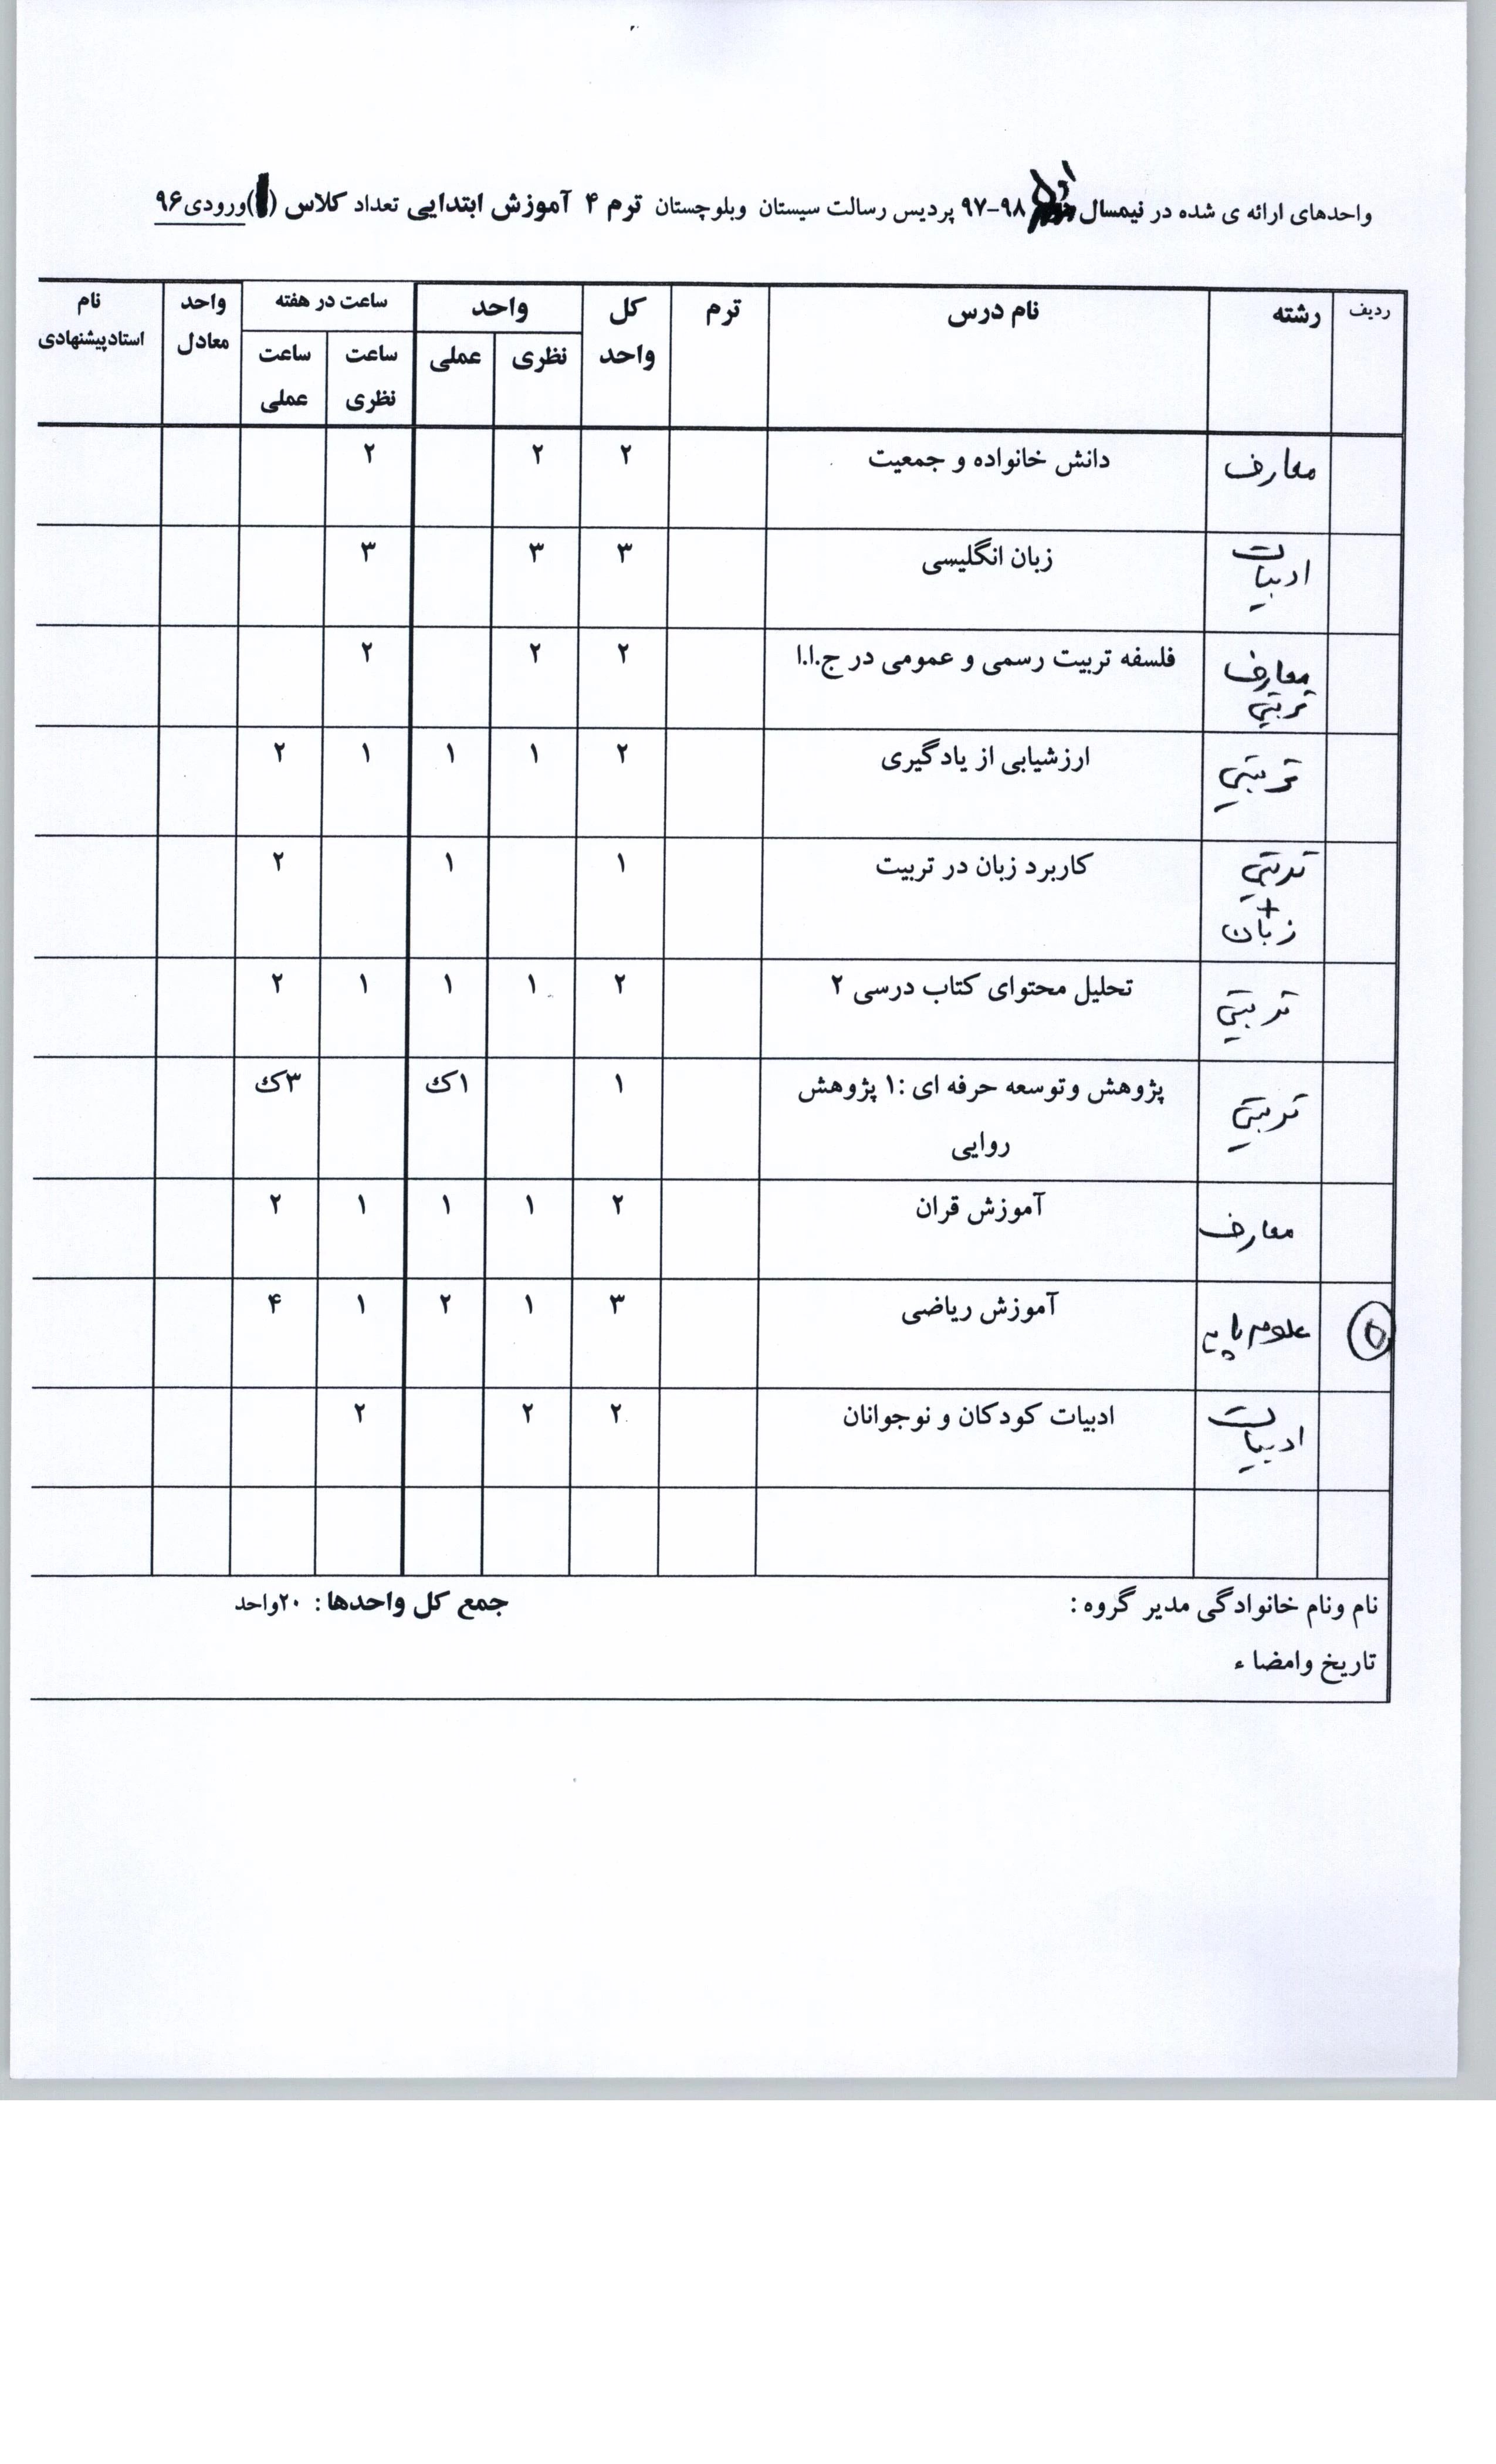 واحدهای ارائه ی شده در نیمسال اول ۹۸-۹۷ پردیس رسالت سیستان وبلوچستان ترم ۴ آموزش ابتدایی تعداد کلاس ( )ورودی۹۶
ردیف رشته نام درس ترم کل واحد واحد ساعت در هفته واحد معادل نام استادپیشنهادی
نظری عملی ساعت نظری ساعت عملی
معارف دانش خانواده و جمعیت ۲ ۲ ۲
ادبیات زبان انگلیسی ۳ ۳ ۳
معارف تربیتی فلسفه تربیت رسمی و عمومی در ج.ا.ا ۲ ۲ ۲
تربیتی ارزشیابی از یادگیری ۲ ۱ ۱ ۱ ۲
تربیتی + زبان کاربرد زبان در تربیت ۱ ۱ ۲
تربیتی تحلیل محتوای کتاب درسی ۲ ۲ ۱ ۱ ۱ ۲
تربیتی پژوهش وتوسعه حرفه ای :۱ پژوهش ۱ ۱ک ۳ک
روایی
معارف آموزش قران ۲ ۱ ۱ ۱ ۲
۵ علوم پایه آموزش ریاضی ۳ ۱ ۲ ۱ ۴
ادبیات ادبیات کودکان و نوجوانان ۲ ۲ ۲
نام ونام خانوادگی مدیر گروه : جمع کل واحدها : ۲۰واحد
تاریخ وامضا ء